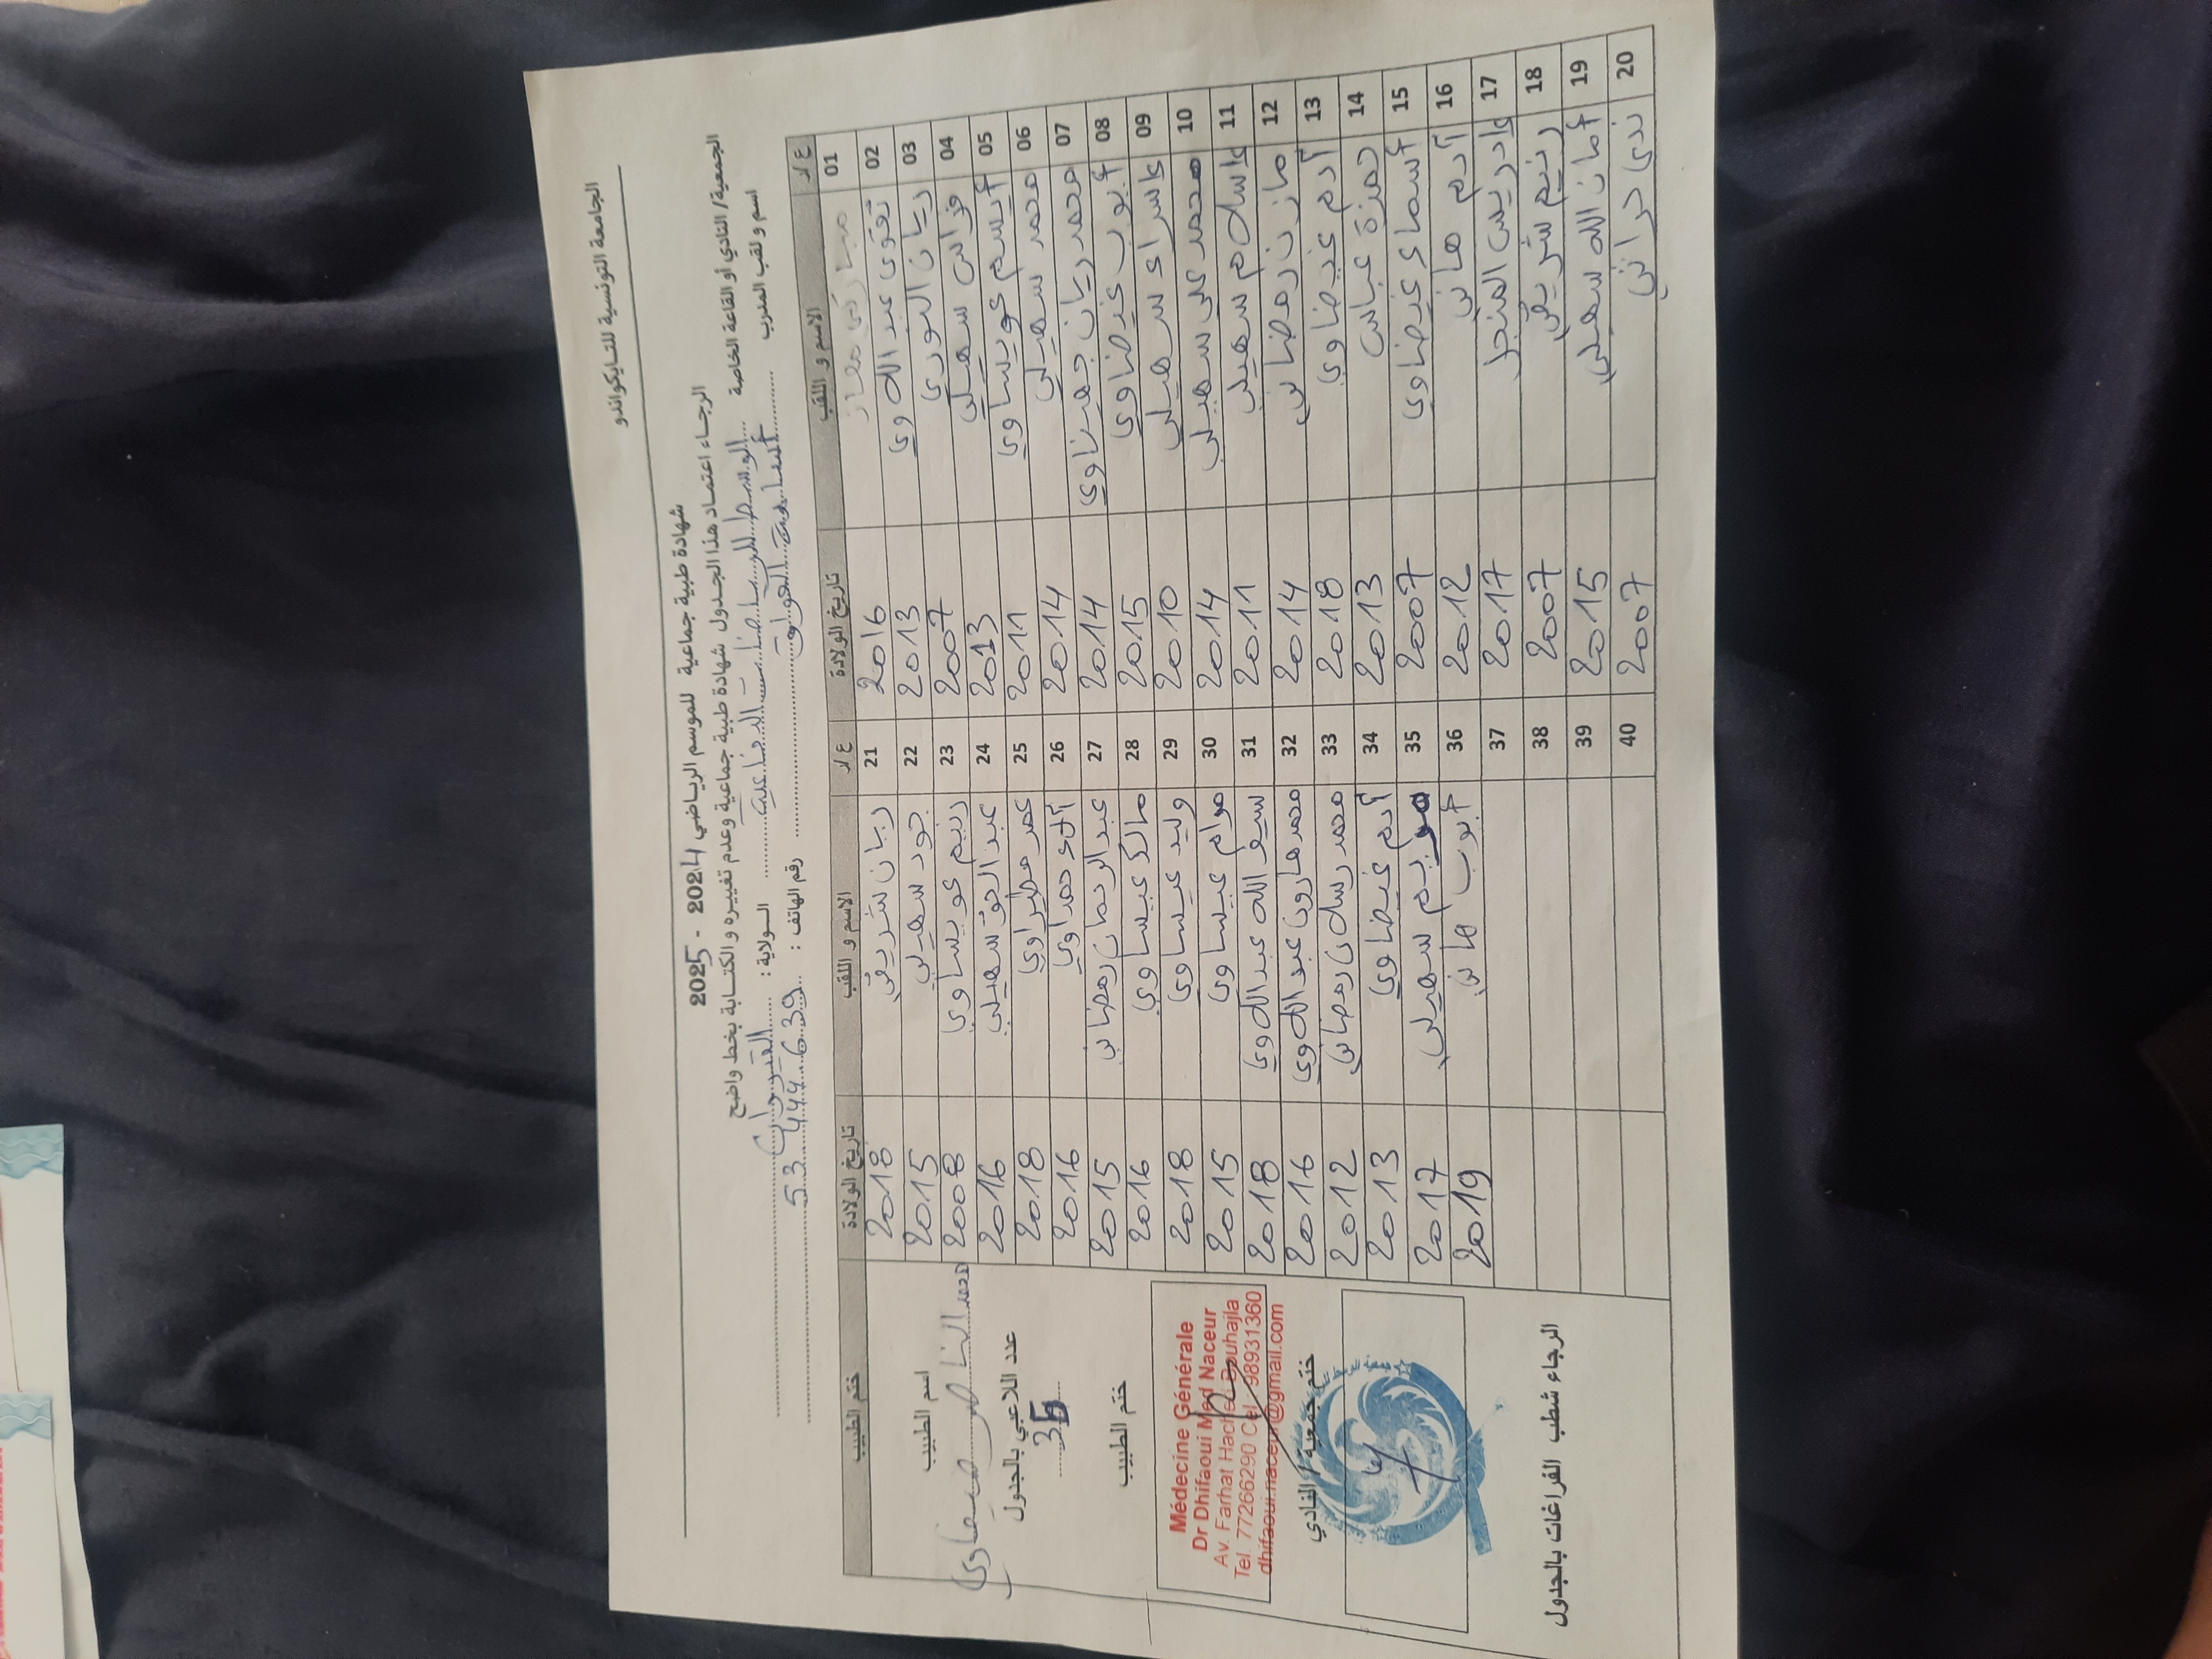 الجامعة التونسية للتايكواندو
شهادة طبية جماعية للموسم الرياضي 2024 - 2025
الرجاء اعتماد هذا الجدول شهادة طبية جماعية وعدم تغييره والكتابة بخط واضح
الجمعية/ النادي أو القاعة الخاصة الوسط للرياضات الدفاعية الولاية : القيروان
اسم و لقب المدرب أسامة رقم الهاتف : 53 444 639
ع/د الاسم و اللقب تاريخ الولادة ع/د الاسم و اللقب تاريخ الولادة ختم الطبيب
01 مباركي معاز 2016 21 ريان شريفي 2018
02 تقوى عبد اللاوي 2013 22 جود سهيلي 2015
03 ريان النوري 2007 23 رنيم عويساوي 2008
04 فراس سهيلي 2013 24 عبد الحق سهيلي 2016
05 أيسم عويساوي 2011 25 عمر مطيراوي 2018
06 محمد سهيلي 2014 26 آلاء حمداوي 2016
07 محمد ريان جهيناوي 2014 27 عبد الرحمان رمضاني 2015
08 أيوب غيضاوي 2015 28 مالك عيساوي 2016
09 إسراء سهيلي 2010 29 وليد عيساوي 2018
10 محمد علي سهيلي 2014 30 مرام عيساوي 2015
11 إسلام سهيلي 2011 31 سيف الله عبد اللاوي 2018
12 مازن رمضاني 2014 32 محمد هارون عبد اللاوي 2016
13 آدم غيضاوي 2018 33 محمد رسلان رمضاني 2012
14 حمزة عباس 2013 34 آدم غيضاوي 2013
15 أسماء غيضاوي 2007 35 مريم سهيلي 2017
16 آدم هاني 2012 36 أيوب هاني 2019
17 إدريس المنجل 2017 37
18 رنيم شريفي 2007 38
19 أمان الله سهيلي 2015 39
20 ندى حراثي 2007 40
اسم الطبيب
محمد الناصر ضيفاوي
عدد اللاعبي بالجدول
35
ختم الطبيب
Médecine Générale
Dr Dhifaoui Med Naceur
Av. Farhat Hached Bouhajla
Tel. 77266290 Cel : 98931360
dhifaoui.naceur@gmail.com
ختم جمعية / النادي
الرجاء شطب الفراغات بالجدول